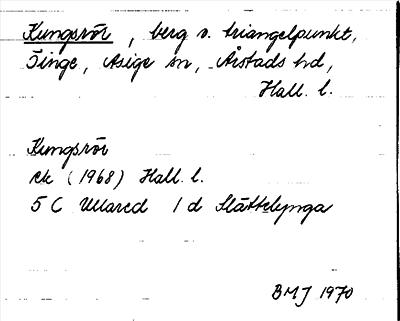 Kungsrör, berg o. triangelpunkt,
Tinge, Asige sn, Årstads hd,
Hall. l.
Kungsrör
ek (1968) Hall. l.
5 C Ullared 1 d Slättelynga
BMJ 1970